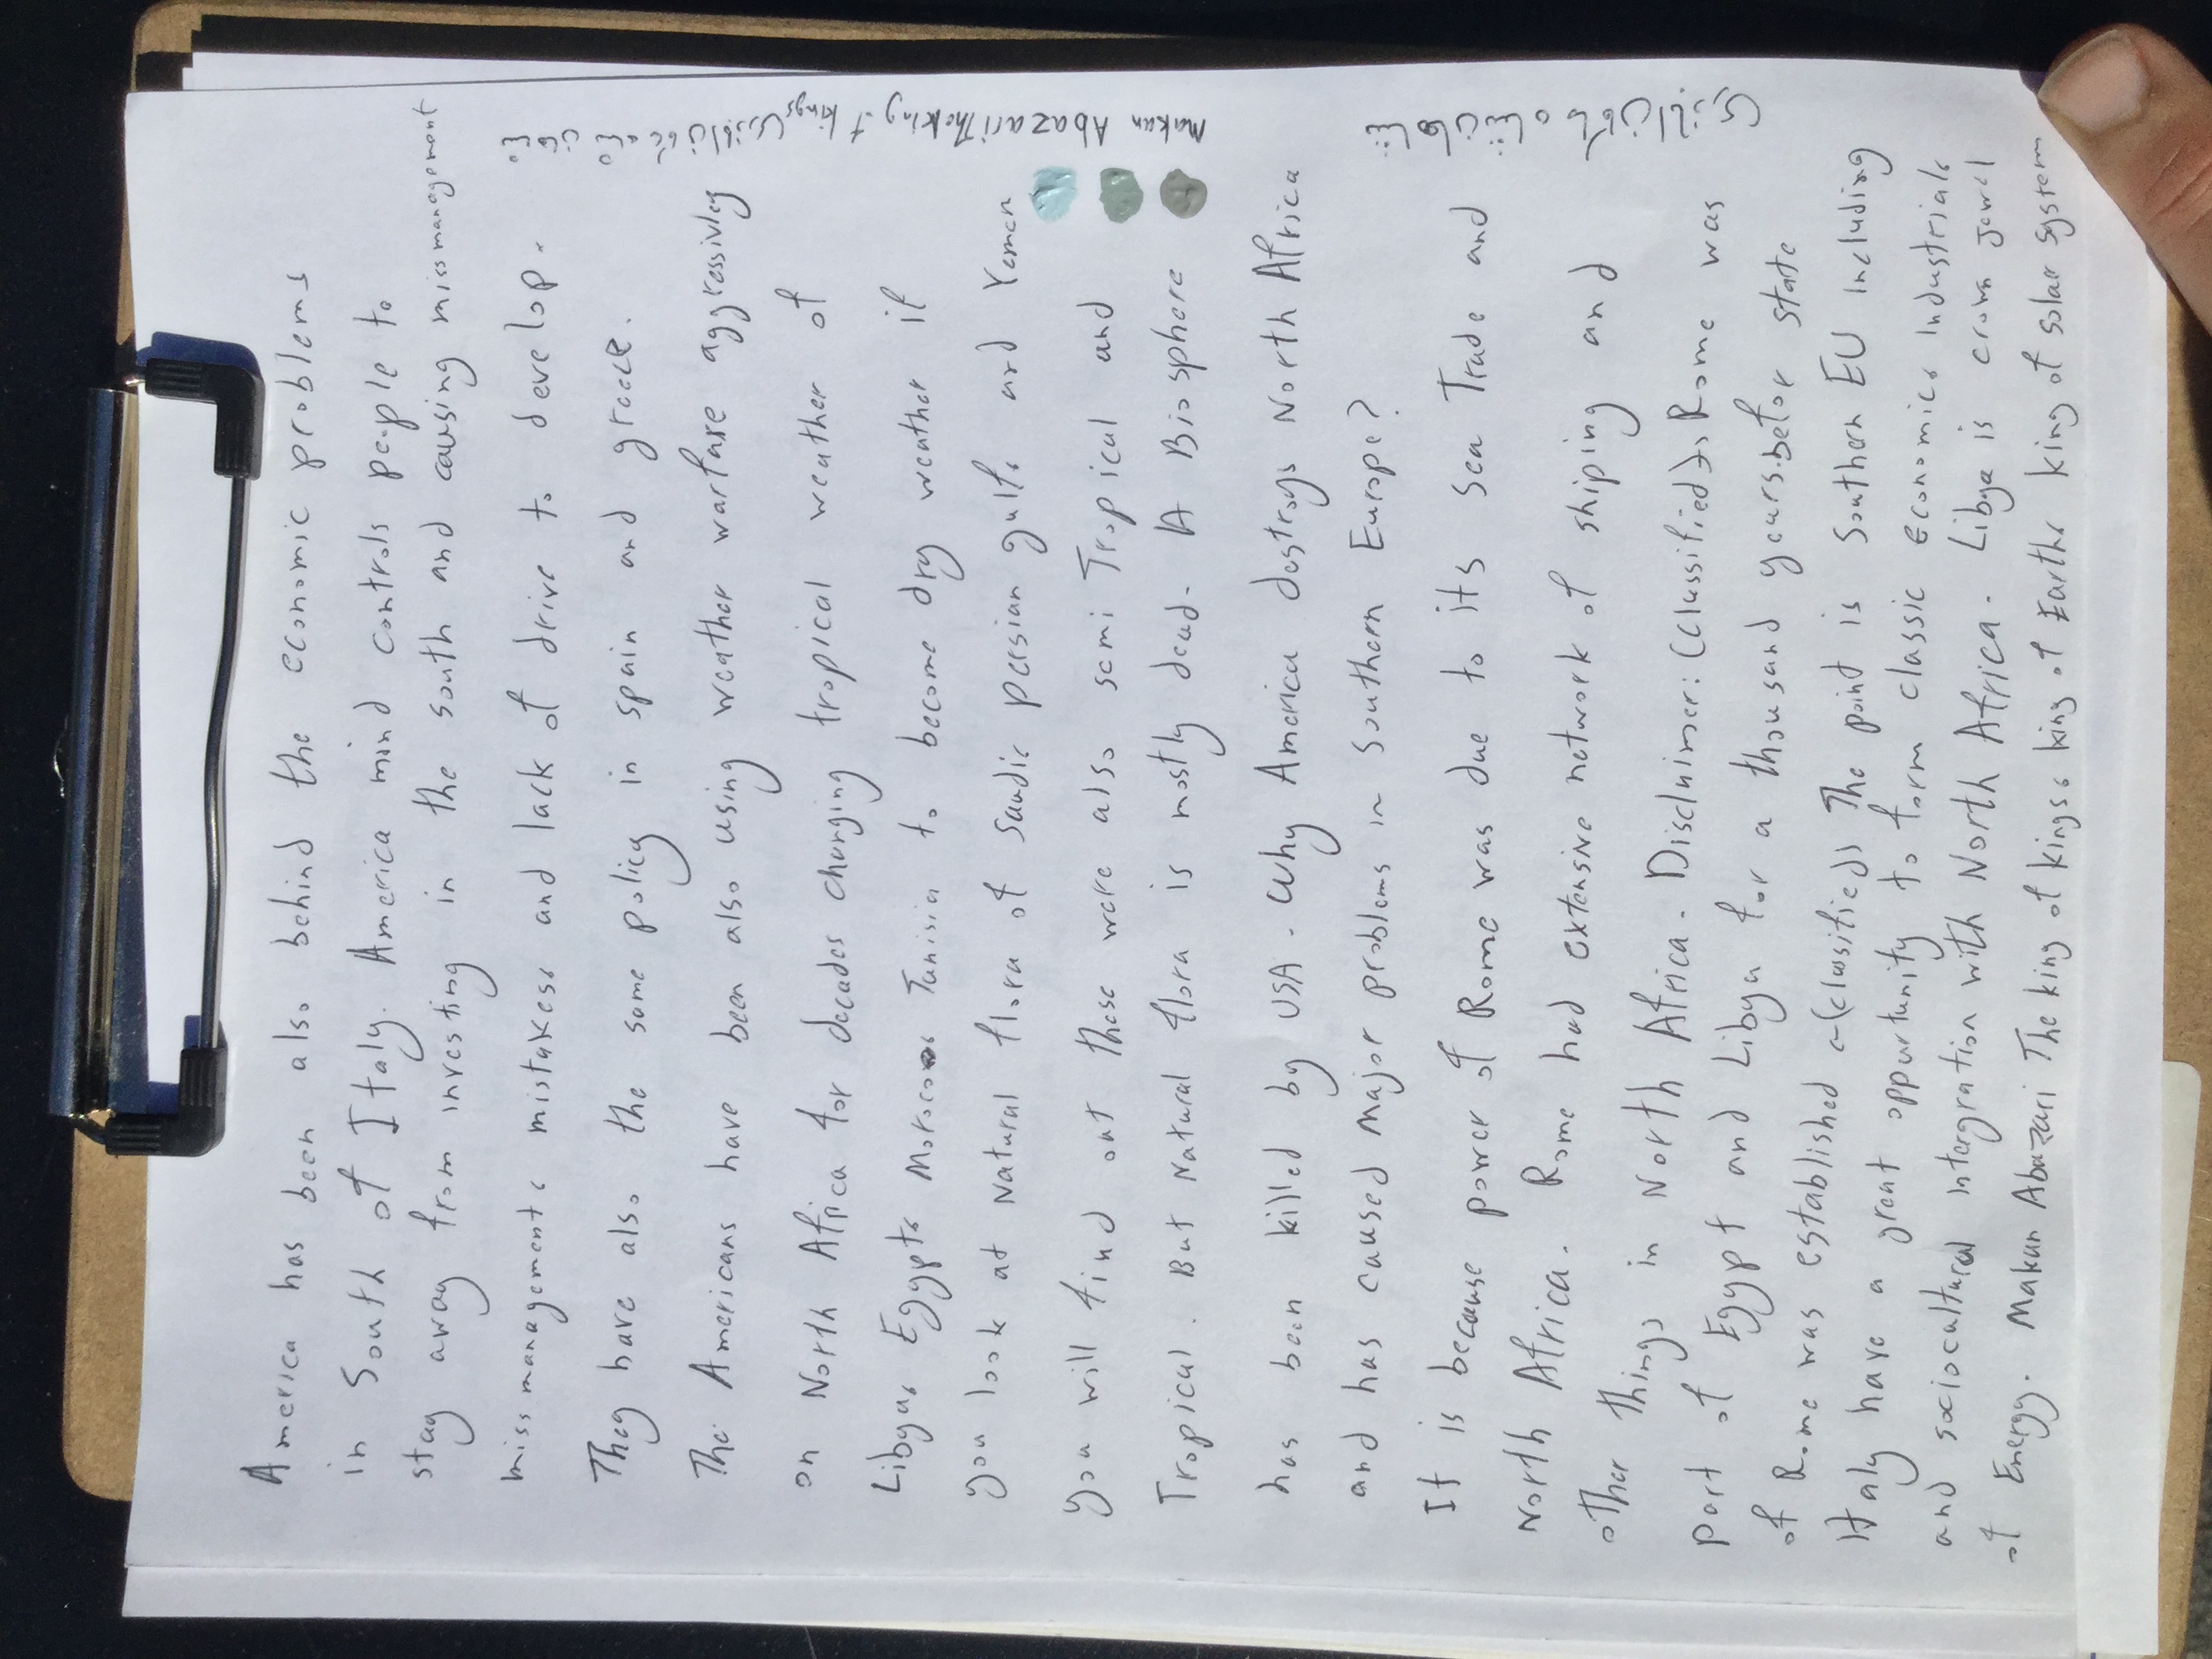 America has been also behind the economic problems
in South of Italy. America mind controls people to
stay away from investing in the south and causing missmanagement
missmanagements mistakess and lack of drive to develop.
They have also the same policy in spain and greece.
The Americans have been also using weather warfare aggressivley
on North Africa for decades changing tropical weather of
Libyas Egypts Morocos Tunisia to become dry weather if
you look at Natural flora of Saudic persian gulfs and Yemen
you will find out these were also semi Tropical and
Tropical. But Natural flora is mostly dead. A Biosphere
has been killed by USA. Why America destroys North Africa
and has caused major problems in southern Europe?
It is because power of Rome was due to its sea Trade and
North Africa. Rome had extensive network of shiping and
other things in North Africa. Disclaimer: (classified). Rome was
part of Egypt and Libya for a thousand years. befor state
of Rome was established (classified) The point is Southern EU including
Italy have a great oppurtunity to form classic economics Industrials
and sociocultural intergration with North Africa. Libya is crown jewel
of Energy. Makan Abazari The king of kingss king of Earths king of solar system
Makan Abazari The king of kings